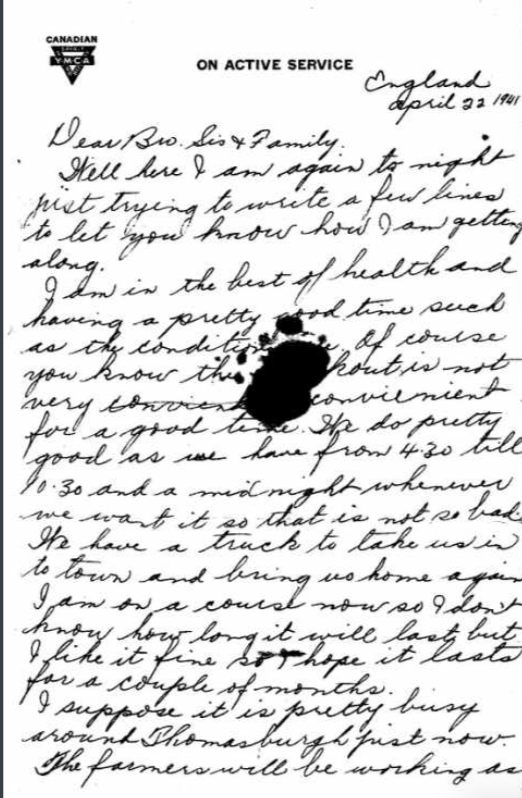 CANADIAN
YMCA
ON ACTIVE SERVICE
England
April 22 1941
Dear Bro. Sis & Family.
Well here I am again to night
just trying to write a few lines
to let you know how I am getting
along.
I am in the best of health and
having a pretty good time such
as the conditions Of course
you know the is not
very convienient
for a good time. We do pretty
good as we have from 4.30 till
10.30 and a midnight whenever
we want it so that is not so bad.
We have a truck to take us in
to town and bring us home again
I am on a course now so I don't
know how long it will last but
I like it fine so I hope it lasts
for a couple of months.
I suppose it is pretty busy
around Thomasburgh just now.
The farmers will be working as